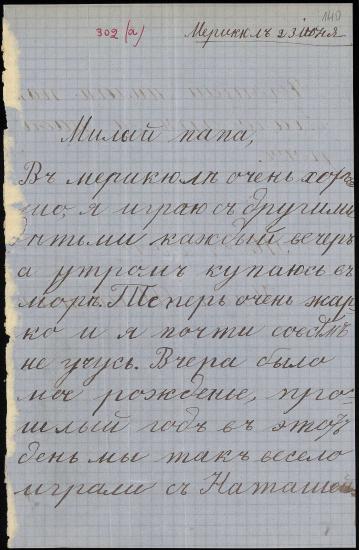 140
302 (a)
Мерикюль 23 июня
Милый папа,
Въ мерикюлѣ очень хоро
шо; я играю съ другими
дѣтьми каждый вечеръ
а утромъ купаюсь въ
морѣ. Теперь очень жар
ко и я почти совсѣмъ
не учусь. Вчера было
мое рожденье, про-
шлый годъ въ этотъ
день мы такъ весело
играли съ Наташей.